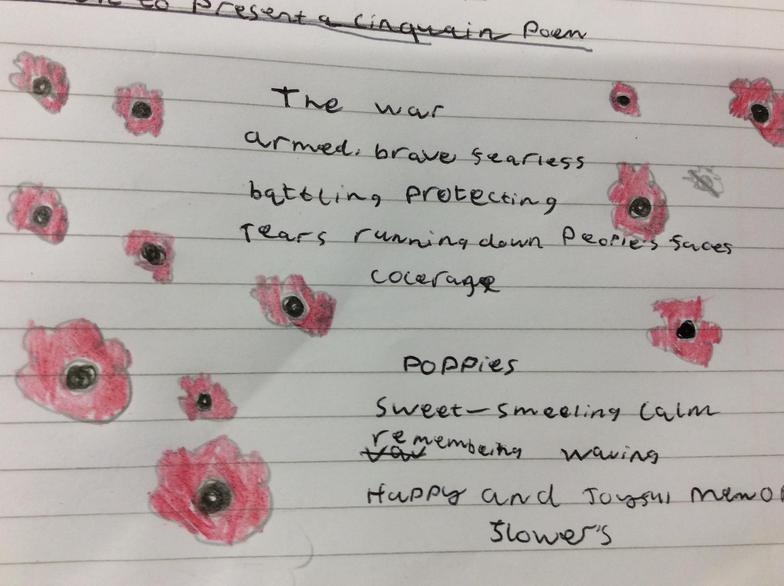 to Present a Cinquain Poem
The war
armed, brave fearless
battling protecting
Tears running down People's faces
cocerage
Poppies
Sweet-smeeling calm
remembeing waving
Happy and Joyful
flower's